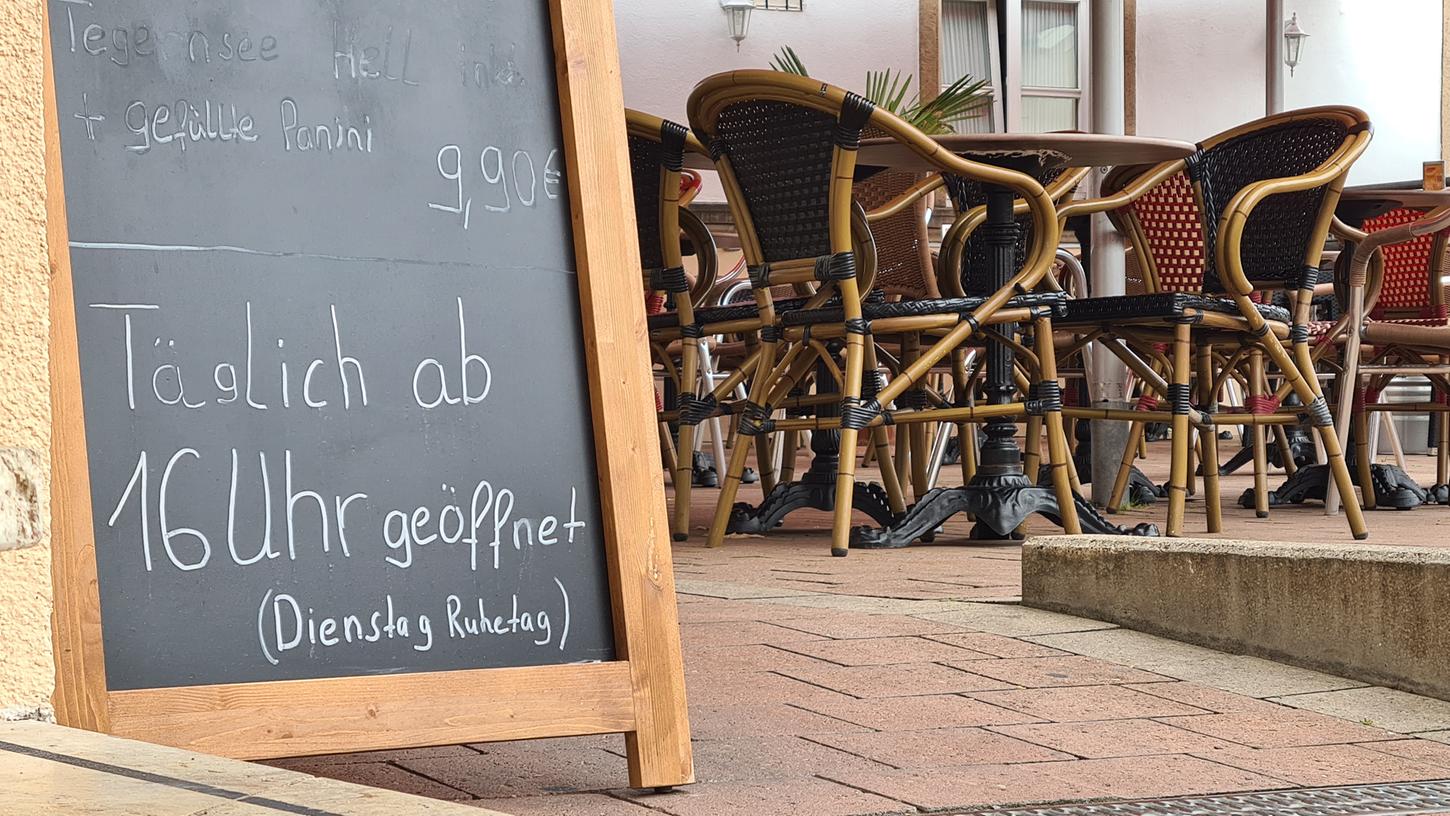 Tegernsee Hell inkl.
+ gefüllte Panini
9,90€
Täglich ab
16 Uhr geöffnet
(Dienstag Ruhetag)